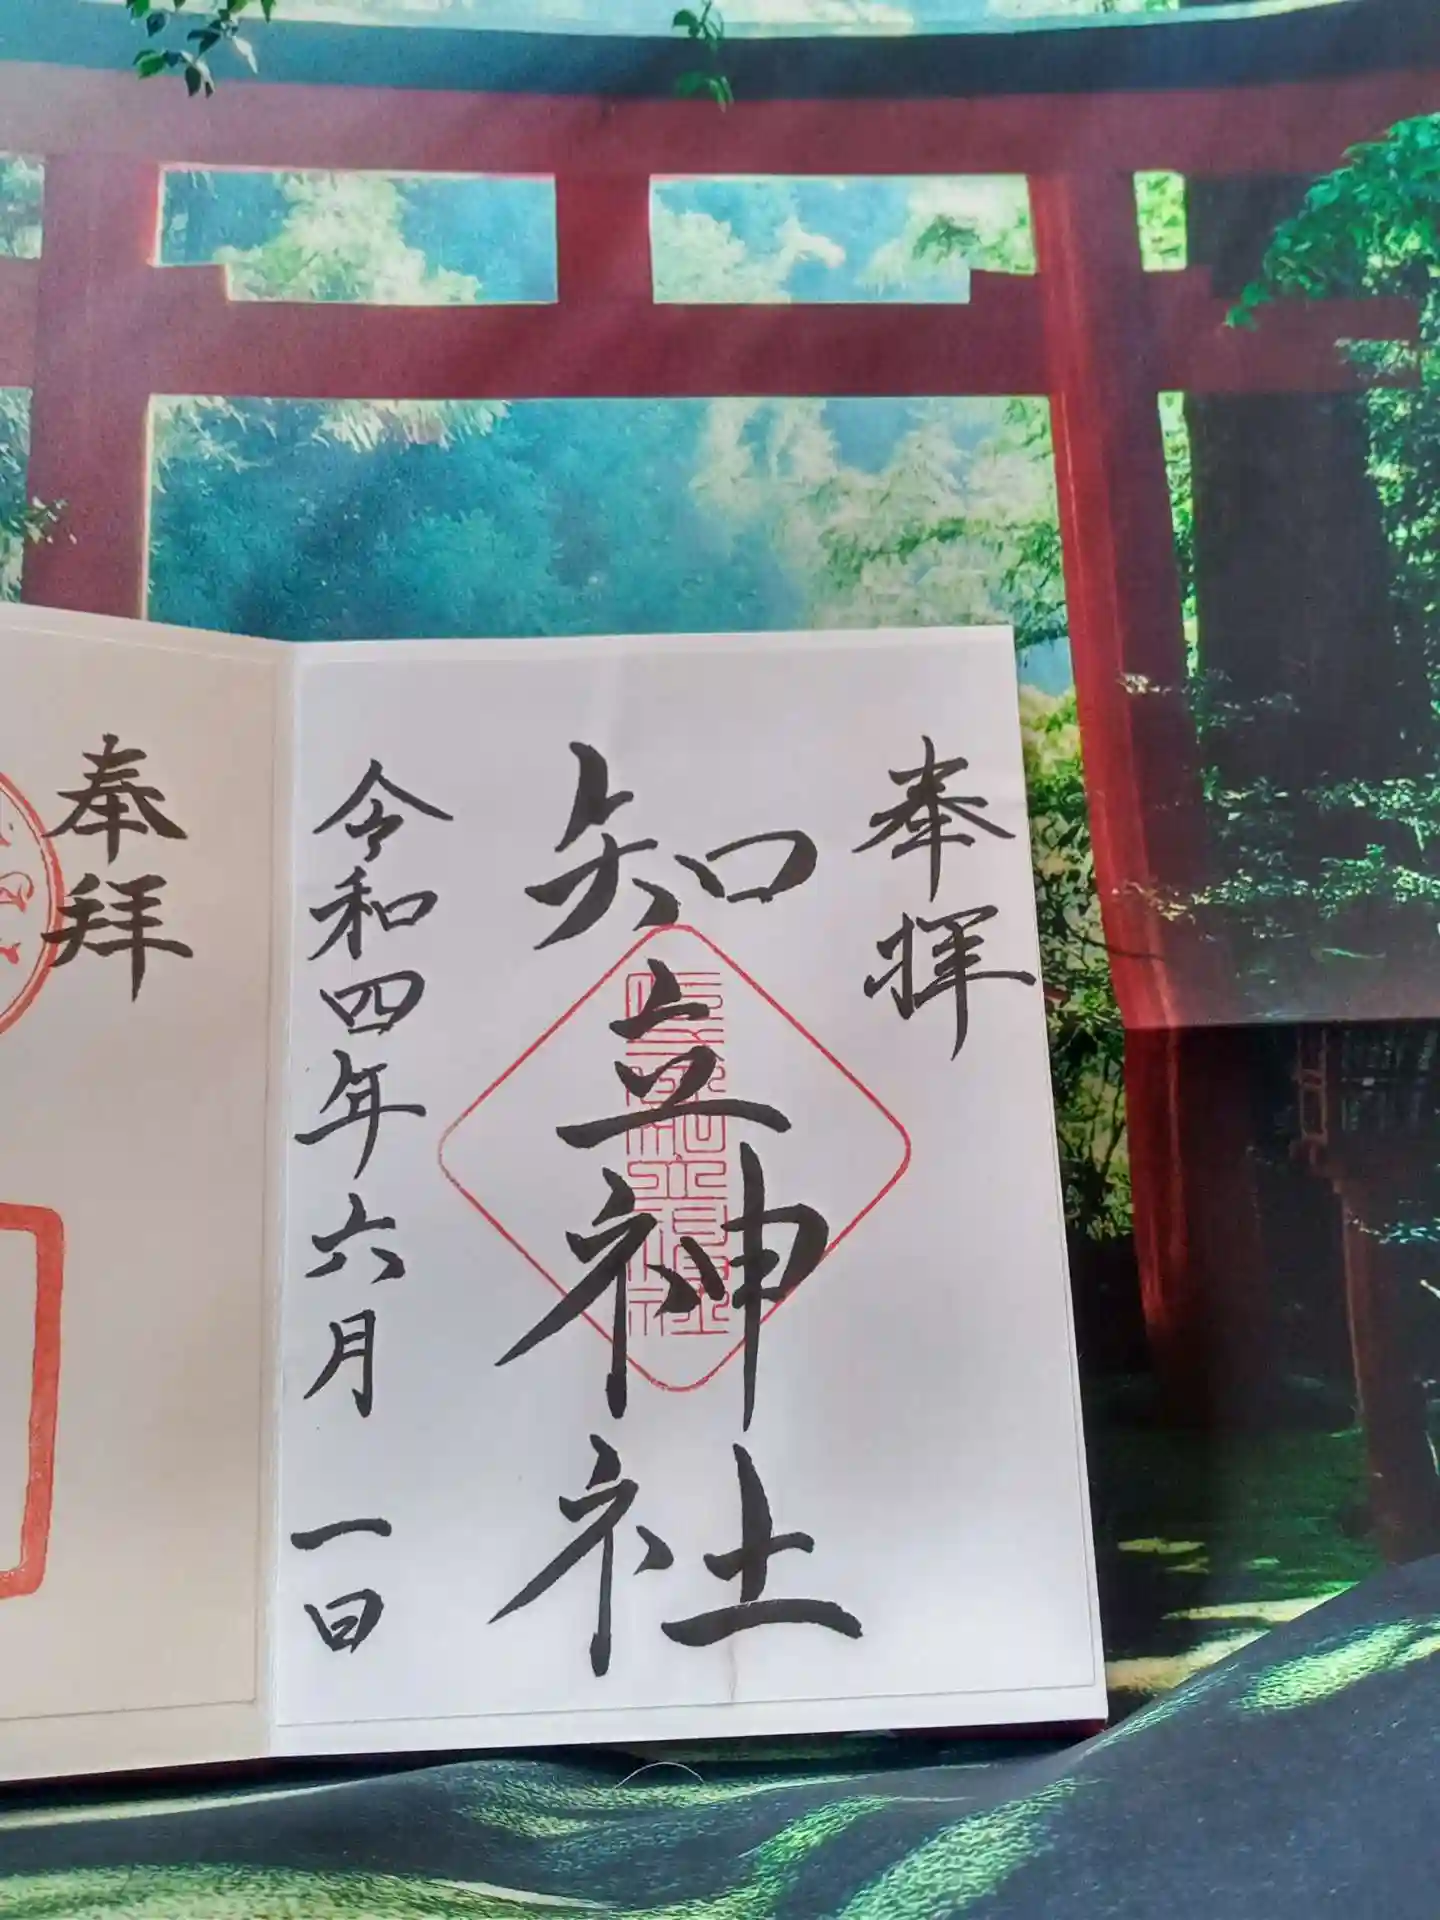 奉拝
知立神社
令和四年六月一日
奉拜